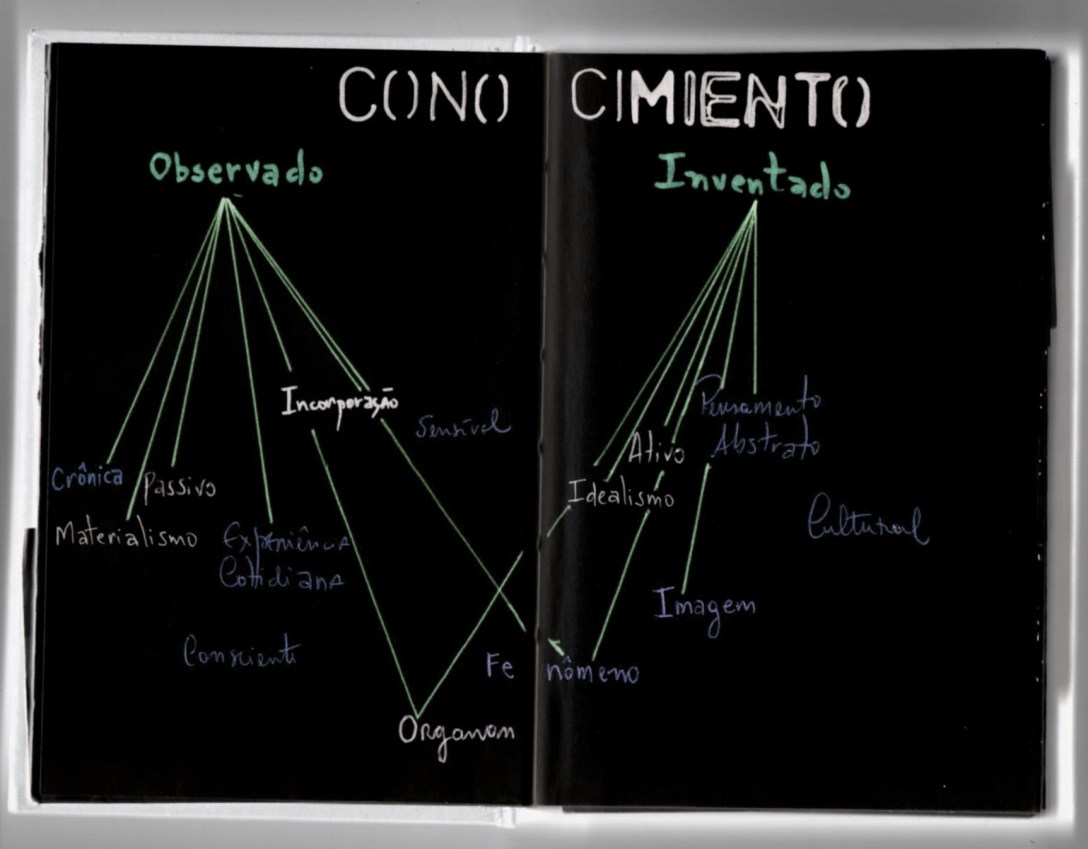 CONOCIMIENTO
Observado
Inventado
Incorporação
Sensível
Pensamento
Abstrato
Ativo
Crônica
Passivo
Idealismo
Materialismo
Experiência
Cotidiana
Cultural
Imagem
Consciente
Fenômeno
Organon